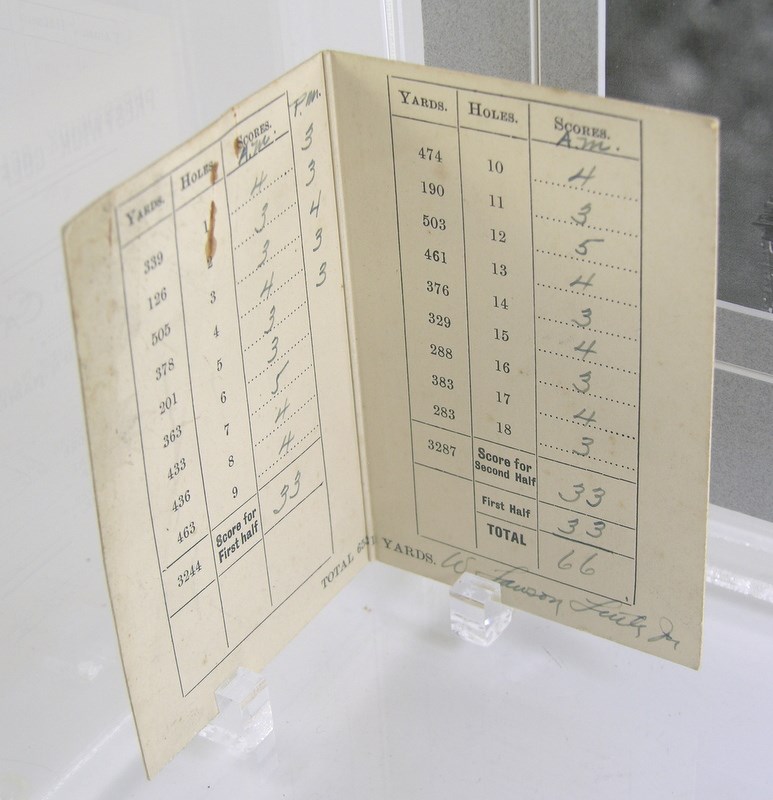 YARDS. HOLES. SCORES. P.M.
A.M.
339 1 4 3
126 2 3 3
505 3 3 4
378 4 4 3
201 5 3 3
363 6 3
433 7 5
436 8 4
463 9 4
3244 Score for First half 33
YARDS. HOLES. SCORES.
A.M.
474 10 4
190 11 3
503 12 5
461 13 4
376 14 3
329 15 4
288 16 3
383 17 4
283 18 3
3287 Score for Second Half 33
First Half 33
TOTAL 66
TOTAL YARDS.
W. Lawson Little Jr